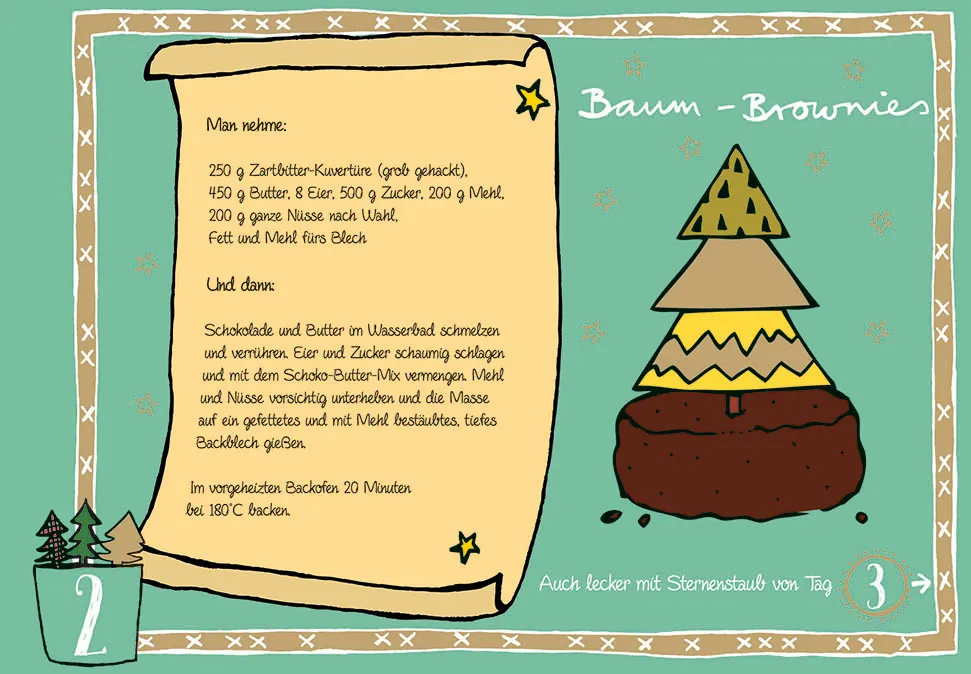 Baum - Brownies
Man nehme:
250 g Zartbitter-Kuvertüre (grob gehackt),
450 g Butter, 8 Eier, 500 g Zucker, 200 g Mehl,
200 g ganze Nüsse nach Wahl,
Fett und Mehl fürs Blech
Und dann:
Schokolade und Butter im Wasserbad schmelzen
und verrühren. Eier und Zucker schaumig schlagen
und mit dem Schoko-Butter-Mix vermengen. Mehl
und Nüsse vorsichtig unterheben und die Masse
auf ein gefettetes und mit Mehl bestäubtes, tiefes
Backblech gießen.
Im vorgeheizten Backofen 20 Minuten
bei 180°C backen.
Auch lecker mit Sternenstaub von Tag 3 →
2